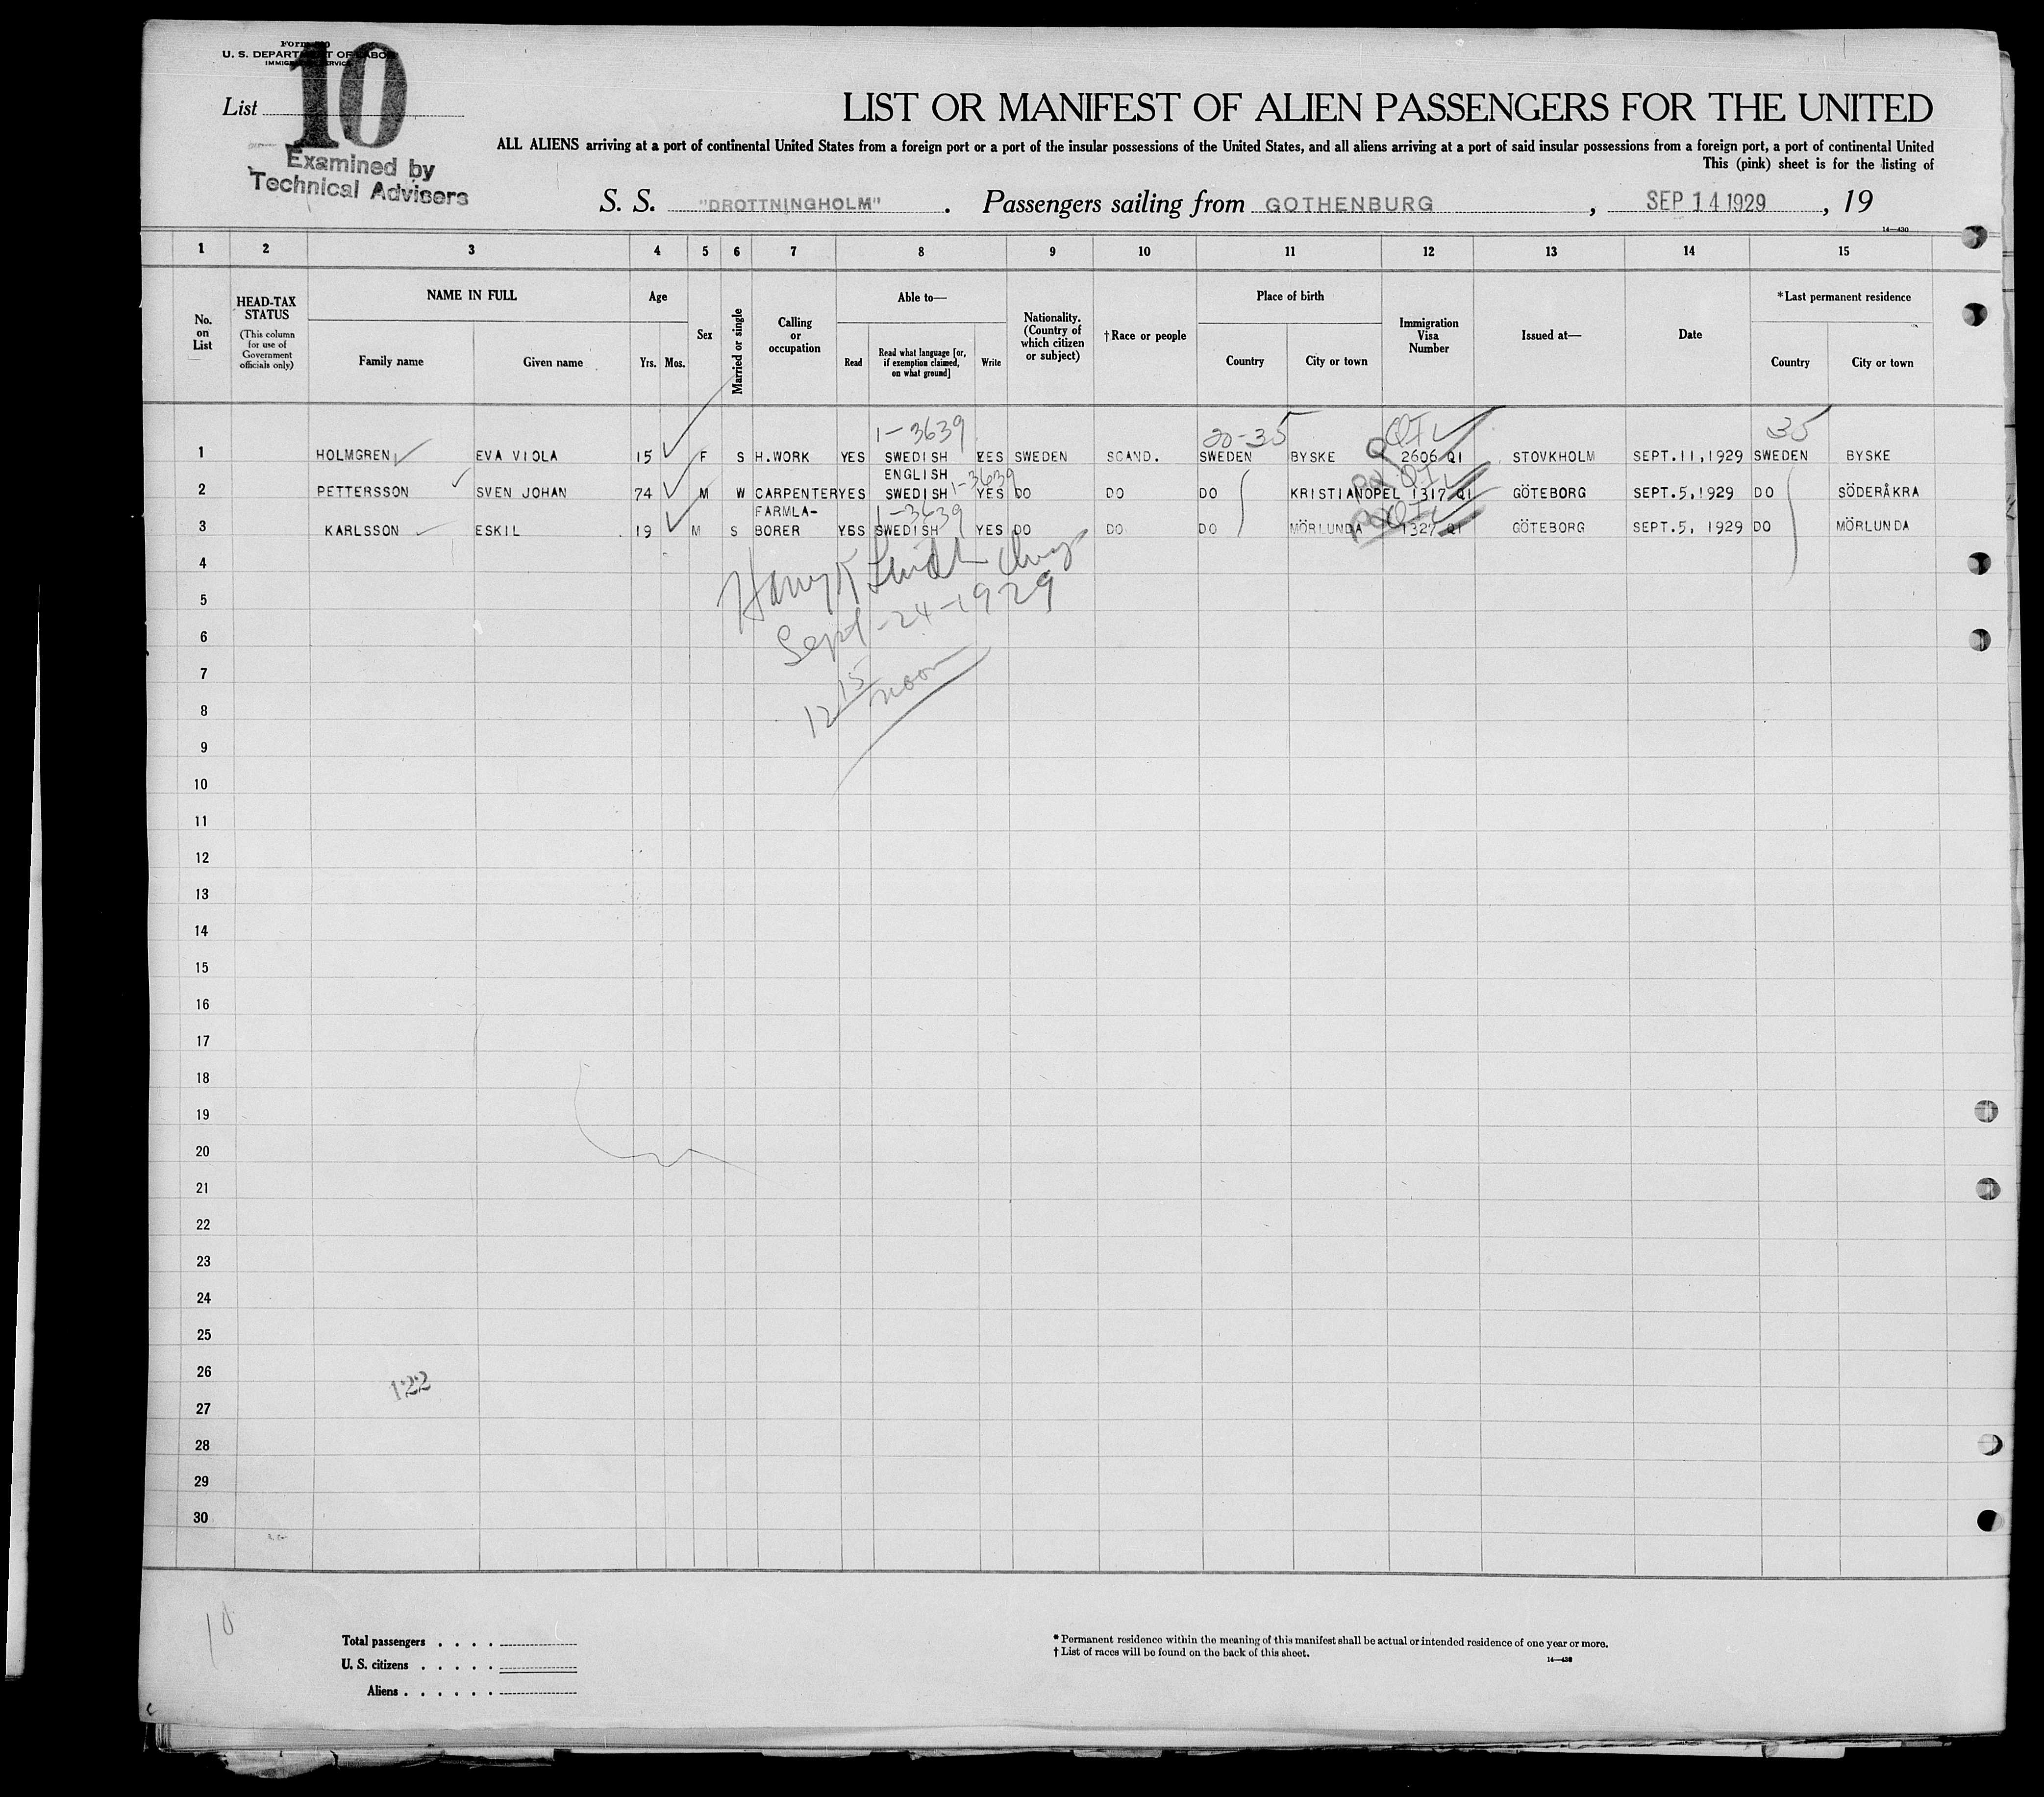 Form
U. S. DEPARTMENT OF LABOR
IMMIGRATION SERVICE
List 10
Examined by
Technical Advisers
LIST OR MANIFEST OF ALIEN PASSENGERS FOR THE UNITED
ALL ALIENS arriving at a port of continental United States from a foreign port or a port of the insular possessions of the United States, and all aliens arriving at a port of said insular possessions from a foreign port, a port of continental United
This (pink) sheet is for the listing of
S. S. "DROTTNINGHOLM" . Passengers sailing from GOTHENBURG , SEP 14 1929 , 19
14—430
1 2 3 4 5 6 7 8 9 10 11 12 13 14 15
No. on List
HEAD-TAX STATUS
(This column for use of Government officials only)
NAME IN FULL
Family name Given name
Age
Yrs. Mos.
Sex
Married or single
Calling or occupation
Able to—
Read
Read what language [or, if exemption claimed, on what ground]
Write
Nationality. (Country of which citizen or subject)
† Race or people
Place of birth
Country City or town
Immigration Visa Number
Issued at—
Date
* Last permanent residence
Country City or town
1-3639 20-35 QI 35
1 HOLMGREN EVA VIOLA 15 F S H.WORK YES SWEDISH YES SWEDEN SCAND. SWEDEN BYSKE 2606 QI STOVKHOLM SEPT.11,1929 SWEDEN BYSKE
ENGLISH 1-3639 QI
2 PETTERSSON SVEN JOHAN 74 M W CARPENTER YES SWEDISH YES DO DO DO KRISTIANOPEL 1317 QI GÖTEBORG SEPT.5,1929 DO SÖDERÅKRA
FARMLA- 1-3639 QI
3 KARLSSON ESKIL 19 M S BORER YES SWEDISH YES DO DO DO MÖRLUNDA 1327 QI GÖTEBORG SEPT.5, 1929 DO MÖRLUNDA
4
Harry K Smith
5
Sept-24-1929
6
7
12 15 noon
8
9
10
11
12
13
14
15
16
17
18
19
20
21
22
23
24
25
26
122
27
28
29
30
10
Total passengers . . . .
U. S. citizens . . . . .
Aliens . . . . . .
* Permanent residence within the meaning of this manifest shall be actual or intended residence of one year or more.
† List of races will be found on the back of this sheet.
14—430